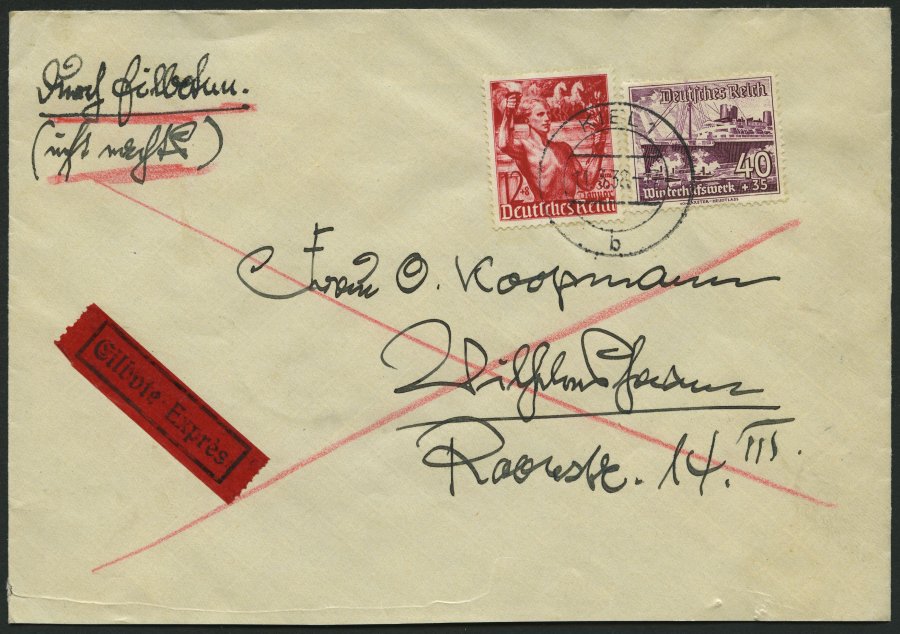 Durch Eilboten.
(nicht nachts)
Deutsches Reich
12 + 8
30. Januar
Deutsches Reich
40
Winterhilfswerk + 35
KIEL 1
38
b
Frau O. Koopmann
Wilhelmshaven
Roonstr. 14. III.
Eilbote · Exprès